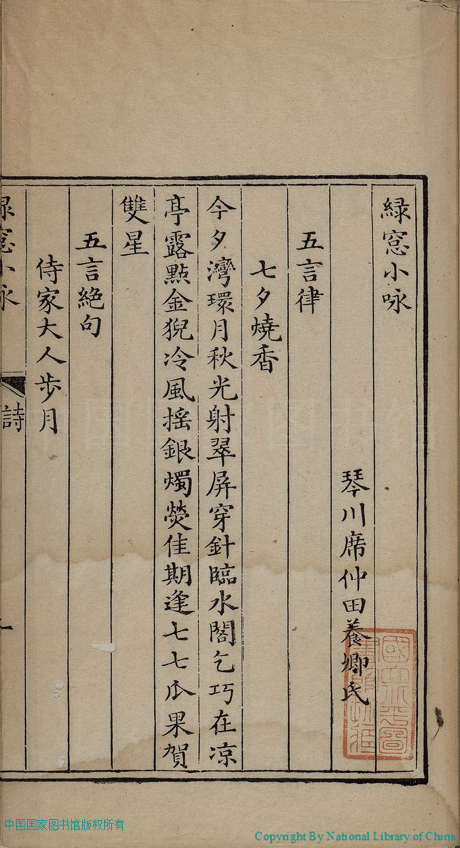 緑窓小咏
琴川席仲田養卿氏
五言律
七夕燒香
今夕灣環月秋光射翠屏穿針臨水閣乞巧在凉
亭露點金猊冷風搖銀燭熒佳期逢七七瓜果賀
雙星
五言絶句
侍家大人步月
緑窓小咏
詩
一
中国国家图书馆版权所有
Copyright By National Library of China